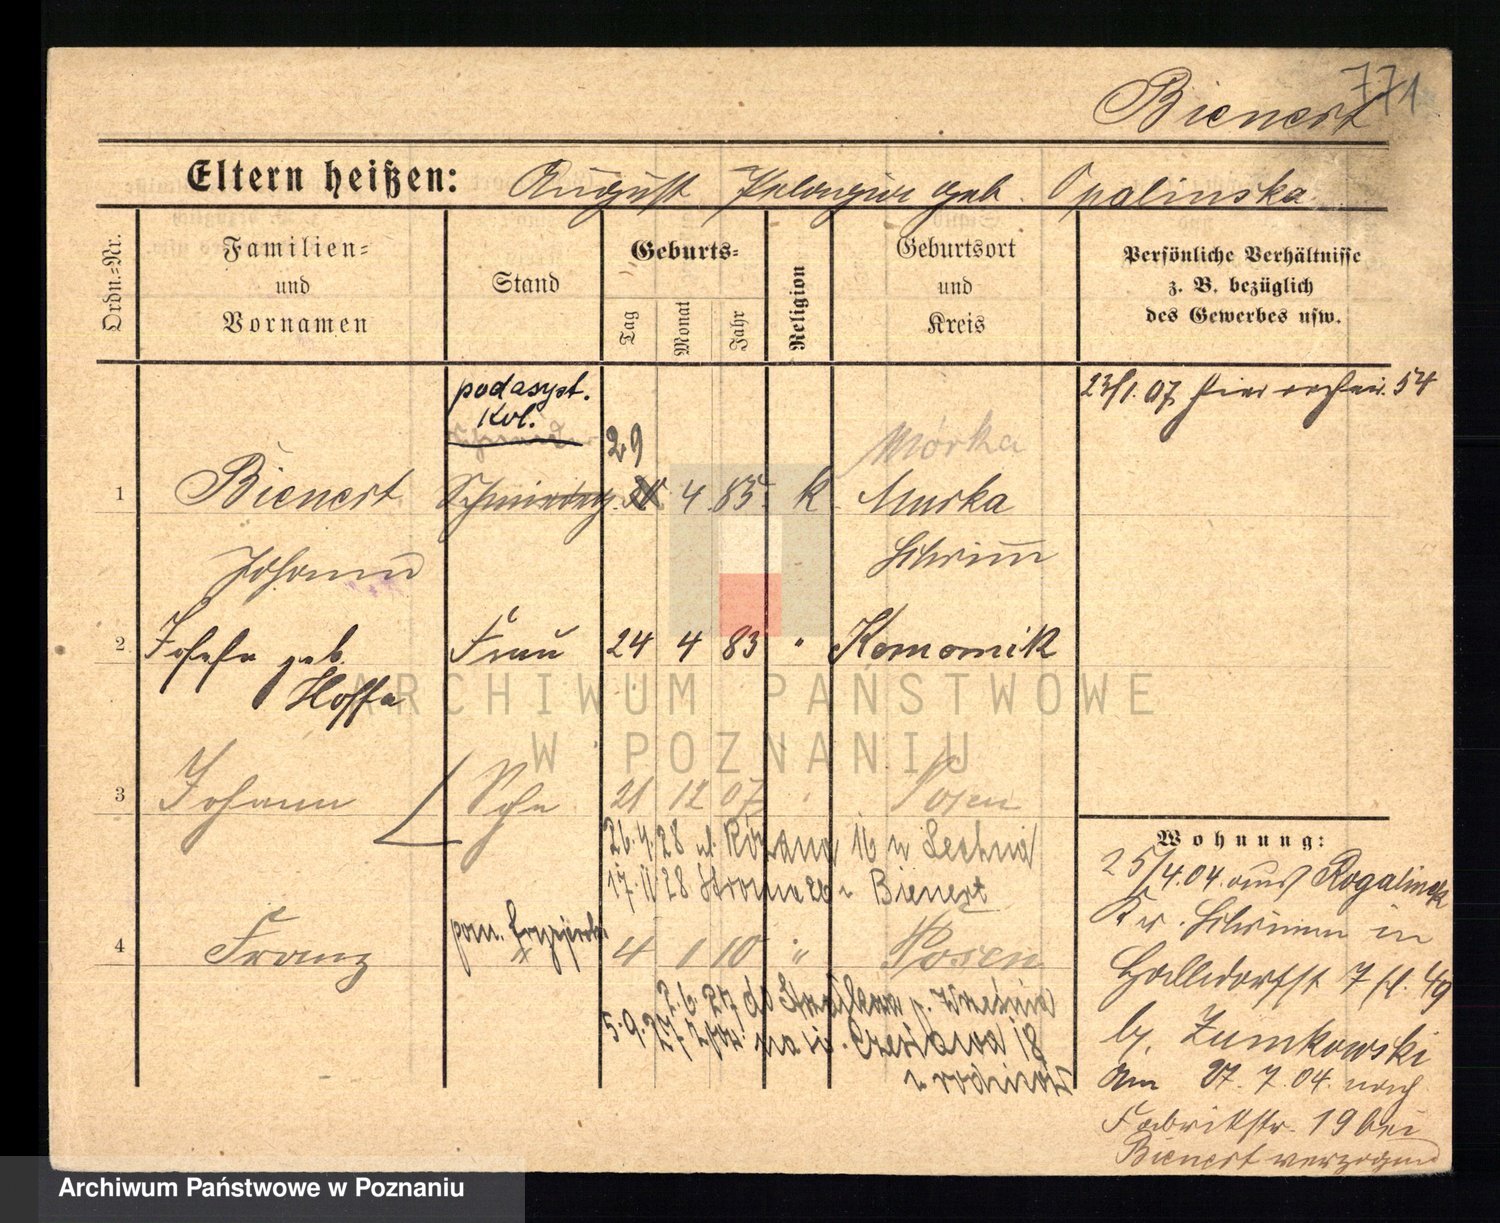 771
Bienert
Eltern heißen: August Pelagia geb. Opalinska
Ordn.=Nr.
Familien=
und
Vornamen
Stand
Geburts=
Tag
Monat
Jahr
Religion
Geburtsort
und
Kreis
Persönliche Verhältnisse
z. B. bezüglich
des Gewerbes usw.
23/1. 07. hier 54
podasyst.
Kol.
29
Mórka
1 Bienert 4 85. k Murka
Johann Schrimm
2 Josefa geb. Frau 24 4 83 " Komornik
Hoffa
ARCHIWUM PAŃSTWOWE
W POZNANIU
3 Johann Sohn 21 12 07 " Posen
26.4.28 ul. Różana 16 u Lechna
17.11.28 Stroma 26 u Bienert
4 Franz pom. 4 1 10 " Posen
2.6.27 do p. Września
5.9.27 na ul. Czesława 18
u rodziców
Wohnung:
25/4.04. aus Rogalinek
Kr. Schrimm in
7
b. Zumkowski
am 27.7.04. nach
Fabrikstr. 19 bei
Bienert verzogen
Archiwum Państwowe w Poznaniu